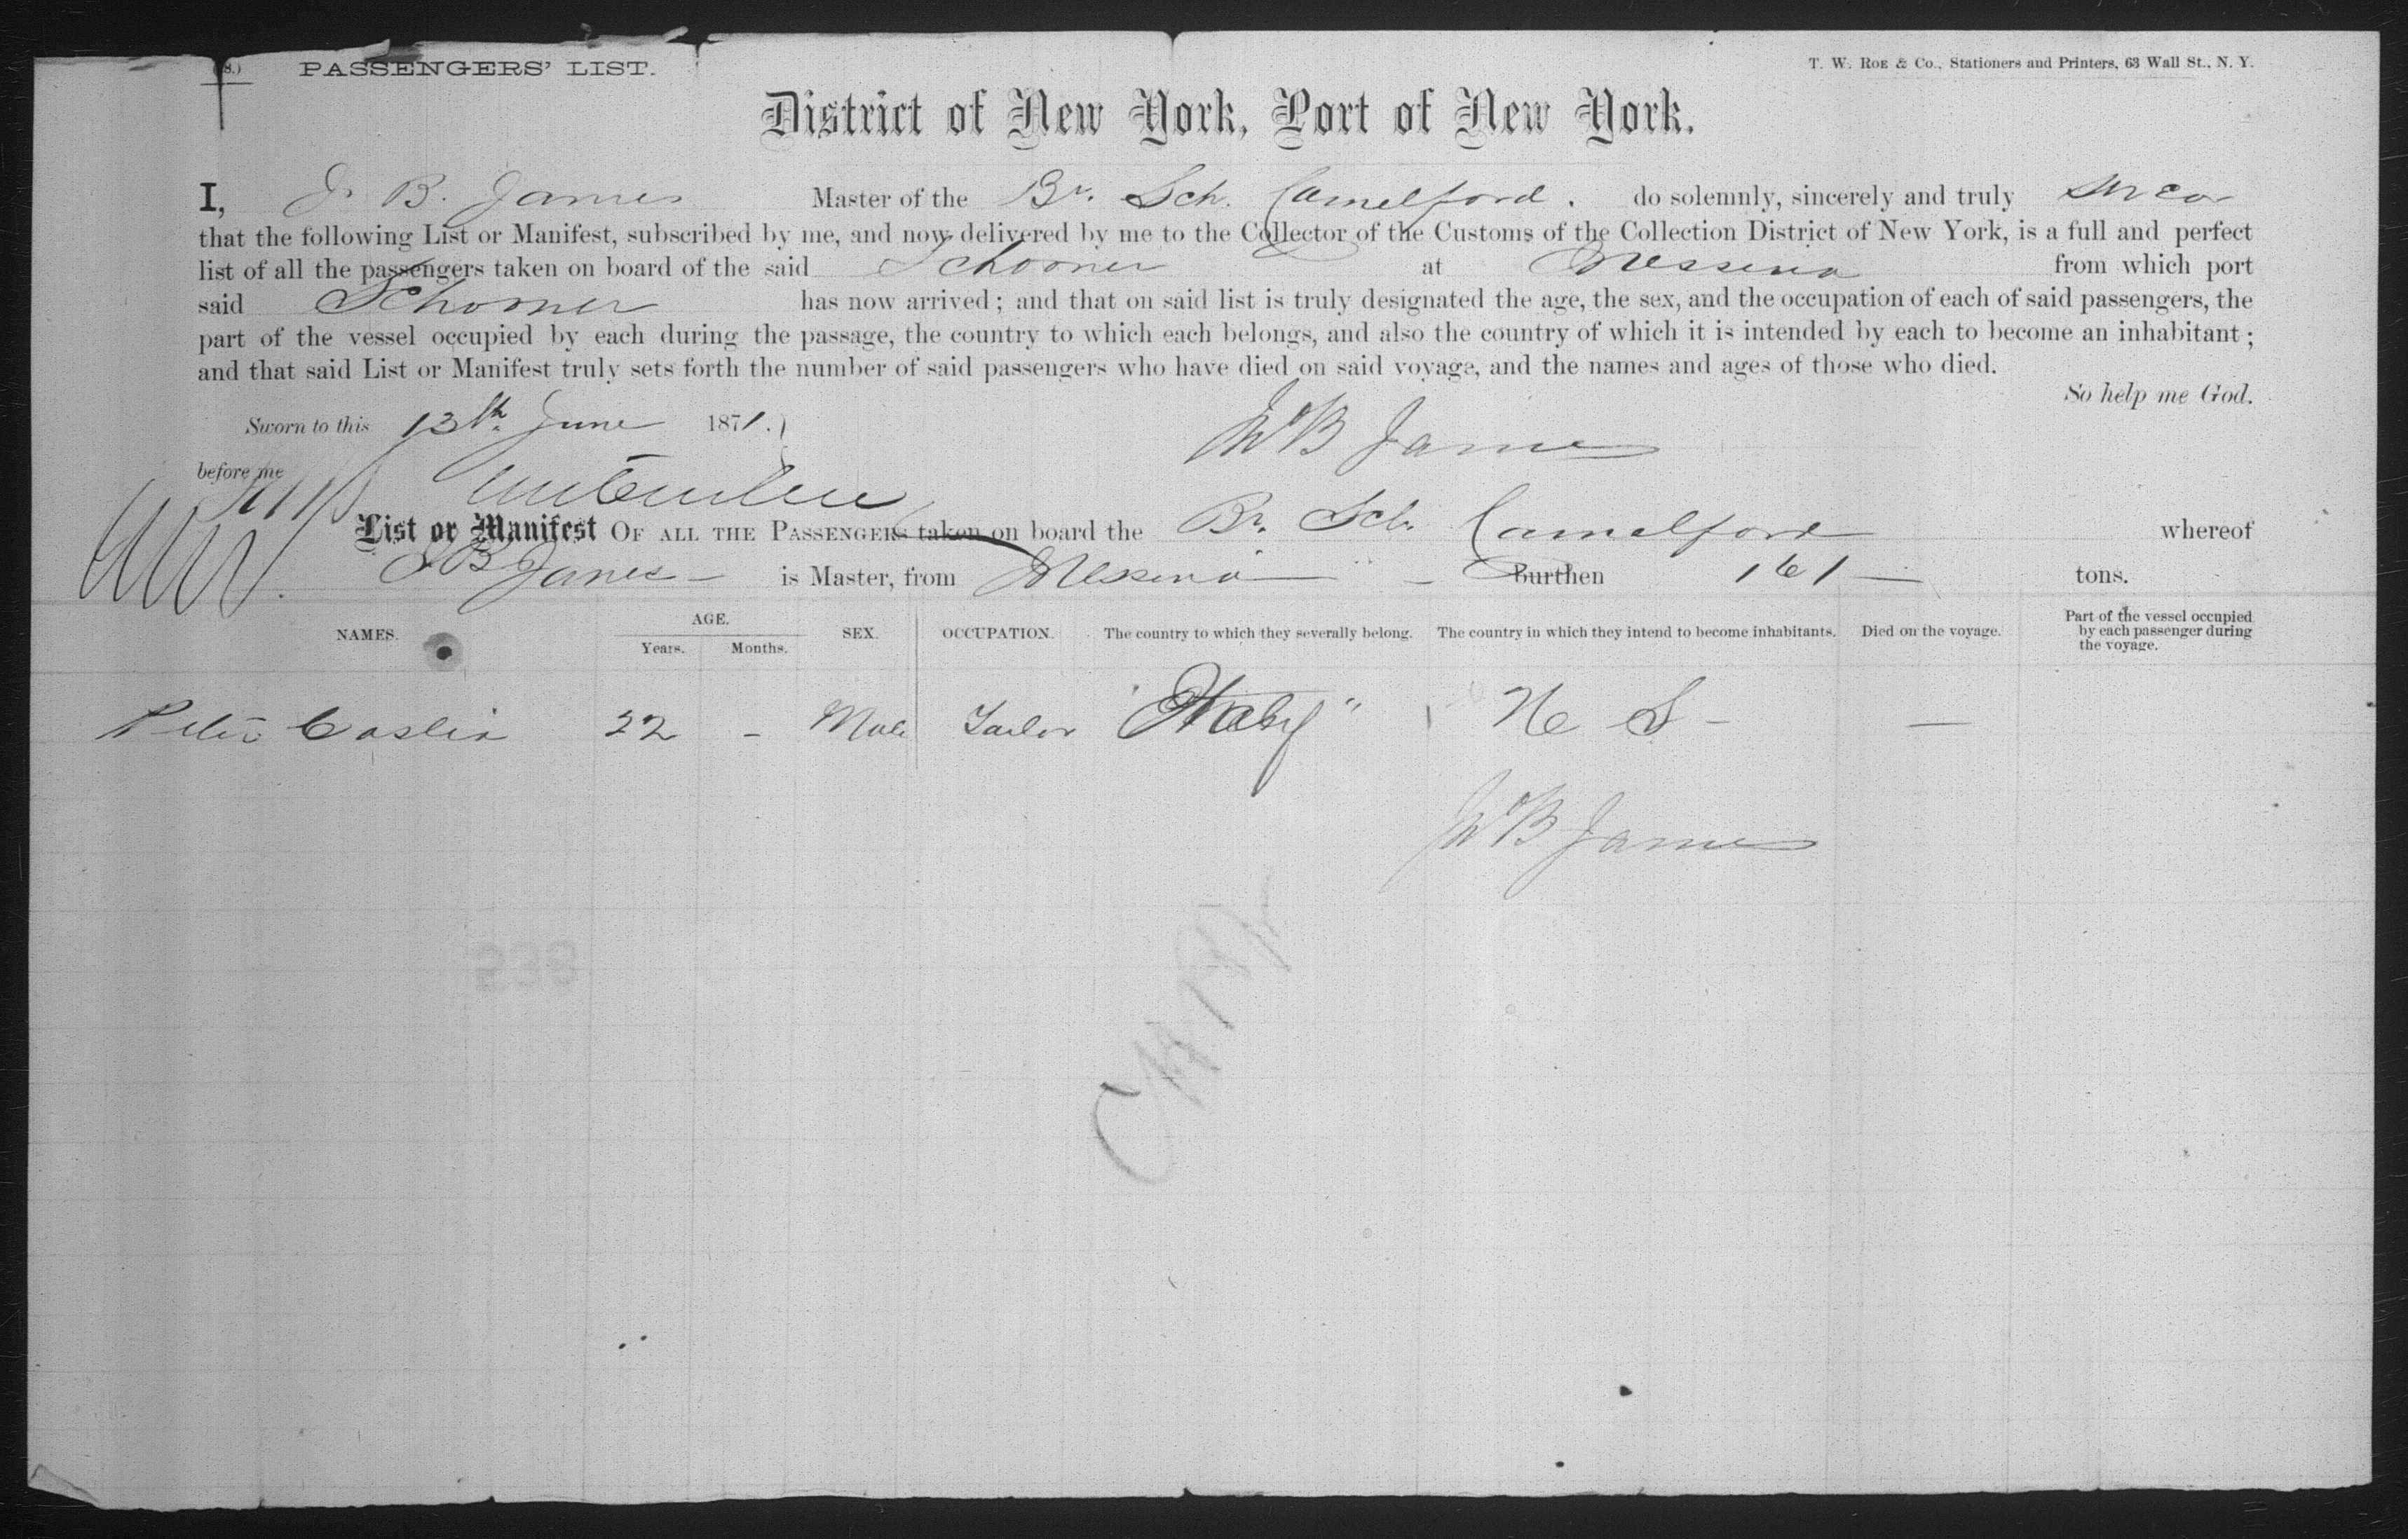 PASSENGERS' LIST.
T. W. ROE & Co., Stationers and Printers, 63 Wall St., N. Y.
District of New York, Port of New York.
I, J. B. James Master of the Br. Sch. Camelford. do solemnly, sincerely and truly swear
that the following List or Manifest, subscribed by me, and now delivered by me to the Collector of the Customs of the Collection District of New York, is a full and perfect
list of all the passengers taken on board of the said Schooner at Messina from which port
said Schooner has now arrived; and that on said list is truly designated the age, the sex, and the occupation of each of said passengers, the
part of the vessel occupied by each during the passage, the country to which each belongs, and also the country of which it is intended by each to become an inhabitant;
and that said List or Manifest truly sets forth the number of said passengers who have died on said voyage, and the names and ages of those who died.
So help me God.
Sworn to this 13th June 1871.
B James
before me
List or Manifest OF ALL THE PASSENGERS taken on board the Br. Sch. Camelford whereof
J B James is Master, from Messina burthen 161 tons.
NAMES. AGE. Years. Months. SEX. OCCUPATION. The country to which they severally belong. The country in which they intend to become inhabitants. Died on the voyage. Part of the vessel occupied by each passenger during the voyage.
Peter Caslin 22 - Male Tailor "Italy" U S - —
B James